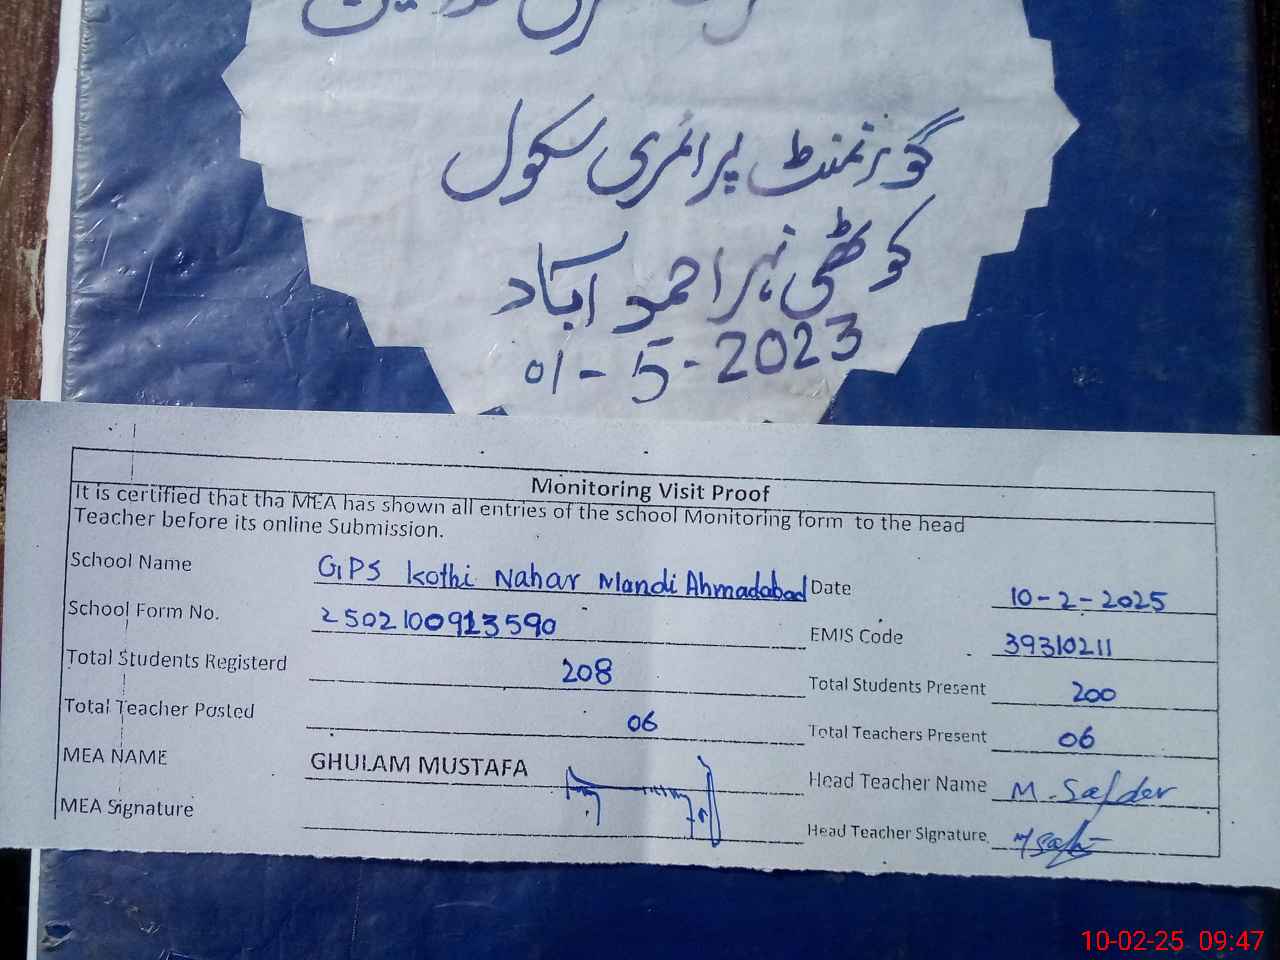 گورنمنٹ پرائمری سکول
کوٹھی نہر احمد آباد
01-5-2023
Monitoring Visit Proof
It is certified that tha MEA has shown all entries of the school Monitoring form to the head
Teacher before its online Submission.
School Name GPS Kothi Nahar Mandi Ahmadabad Date 10-2-2025
School Form No. 2502100913590 EMIS Code 39310211
Total Students Registerd 208 Total Students Present 200
Total Teacher Posted 06 Total Teachers Present 06
MEA NAME GHULAM MUSTAFA Head Teacher Name M. Safder
MEA Signature Head Teacher Signature
10-02-25 09:47